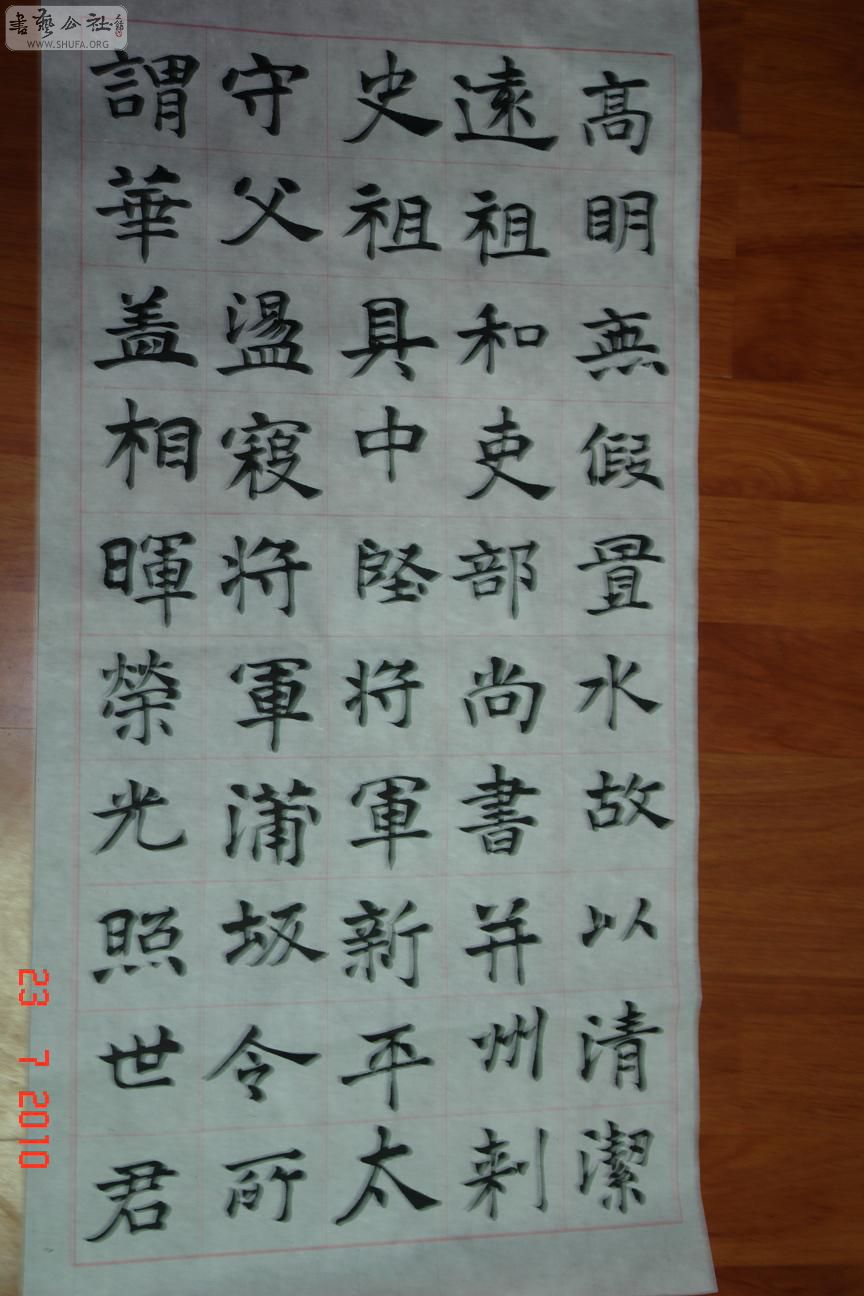 高明無假置水故以清潔
遠祖和吏部尚書并州刺
史祖具中堅將軍新平太
守父盪寇將軍蒲坂令所
謂華蓋相暉榮光照世君
書藝公社
WWW.SHUFA.ORG
23 7 2010